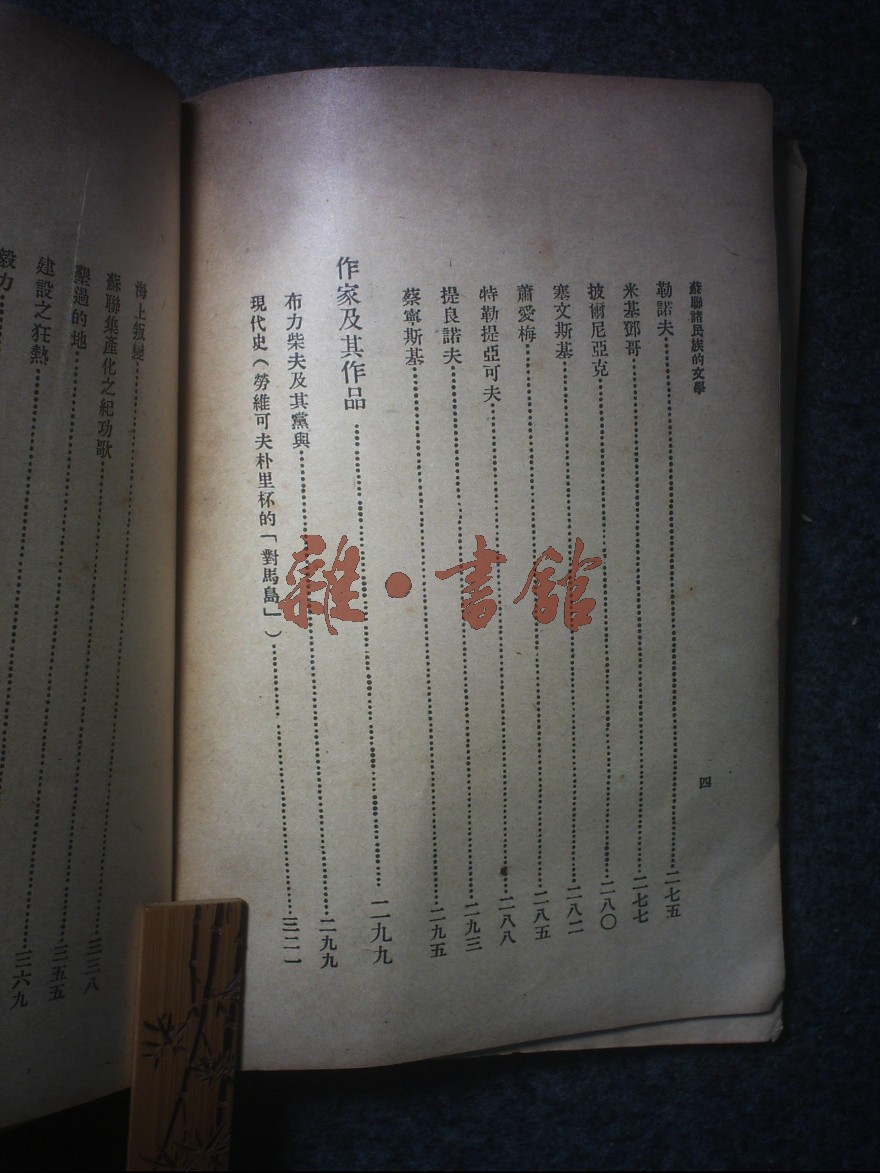 蘇聯諸民族的文學
四
勒諾夫……二七五
米基鄧哥……二七七
披爾尼亞克……二八〇
塞文斯基……二八二
蕭愛梅……二八五
特勒提亞可夫……二八八
提良諾夫……二九三
蔡寧斯基……二九五
作家及其作品……二九九
布力柴夫及其黨與……二九九
現代史（勞維可夫朴里杯的「對馬島」）……三二一
海上叛變……三三八
蘇聯集產化之紀功歌
墾過的地……三五五
建設之狂熱……三六九
毅力……
雜·書館